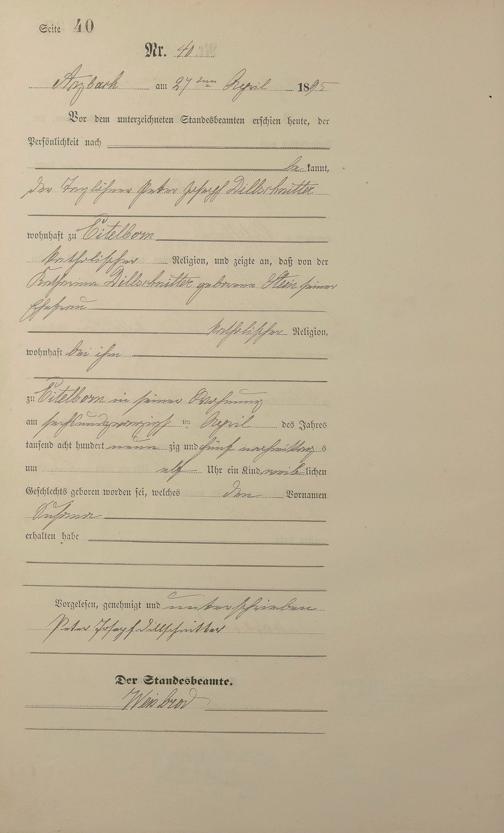 Seite 40
Nr. 40
Arzbach am 27 ten April 1895
Vor dem unterzeichneten Standesbeamten erschien heute, der
Persönlichkeit nach
be kannt,
der Taglöhner Peter Josef Dillschnitter
wohnhaft zu Eitelborn
katholischer Religion, und zeigte an, daß von der
Katharina Dillschnitter geborene Stein seiner
Ehefrau
katholischer Religion,
wohnhaft bei ihm
zu Eitelborn in seiner Wohnung
am sechsundzwanzigst en April des Jahres
tausend acht hundert neun zig und fünf nachmittag s
um elf Uhr ein Kind weib lichen
Geschlechts geboren worden sei, welches den Vornamen
Susanna
erhalten habe
Vorgelesen, genehmigt und unterschrieben
Peter Josepf Dillschnitter
Der Standesbeamte.
Weisbrod